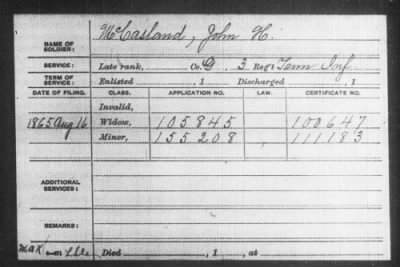 NAME OF SOLDIER: McCasland, John H.
SERVICE: Late rank, Co. G, 3 Reg't Tenn Inf
TERM OF SERVICE: Enlisted , 1 Discharged , 1
DATE OF FILING. CLASS. APPLICATION NO. LAW. CERTIFICATE NO.
Invalid,
1865 Aug 16 Widow, 105845 100647
Minor, 155208 111183
ADDITIONAL SERVICES:
REMARKS:
Died , 1 , at